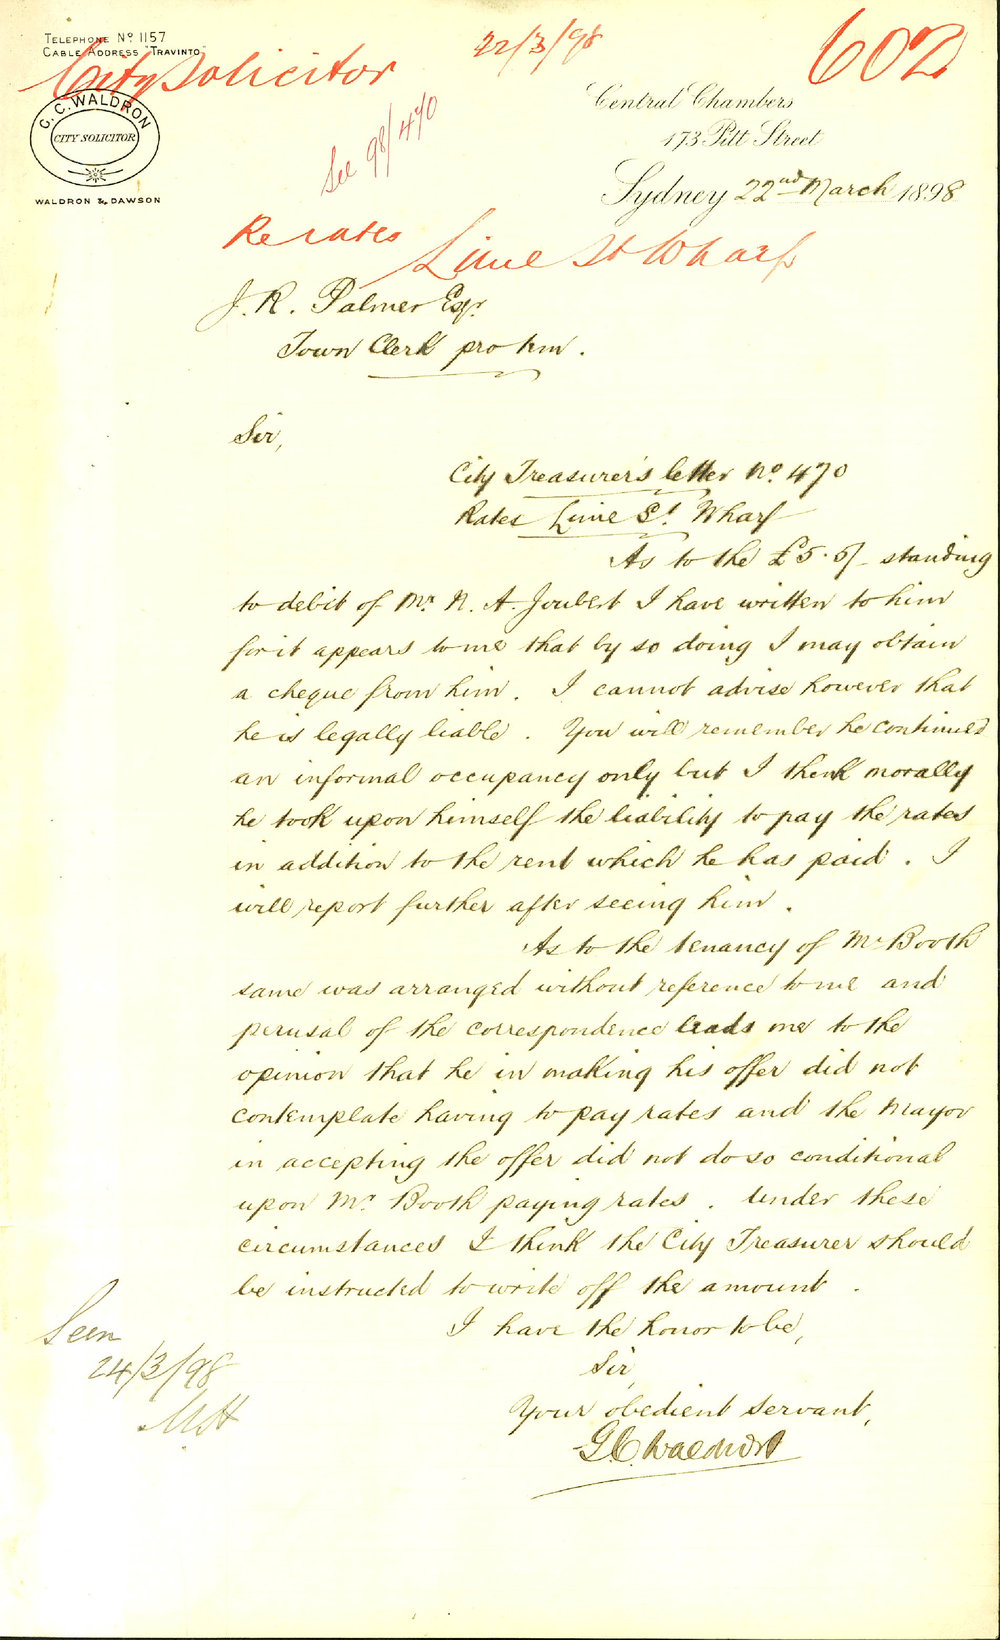 TELEPHONE No 1157
CABLE ADDRESS "TRAVINTO"
City Solicitor
22/3/98
602
G. C. WALDRON
CITY SOLICITOR
WALDRON & DAWSON
See 98/470
Central Chambers
173 Pitt Street
Sydney 22nd March 1898
Re rates
Lime St Wharf
J. R. Palmer Esqr.
Town Clerk pro tem.
Sir,
City Treasurer's letter No. 470
Rates Lime St. Wharf
As to the £5.5/- standing
to debit of Mr. N. A. Joubert I have written to him
for it appears to me that by so doing I may obtain
a cheque from him. I cannot advise however that
he is legally liable. You will remember he continued
an informal occupancy only but I think morally
he took upon himself the liability to pay the rates
in addition to the rent which he has paid. I
will report further after seeing him.
As to the tenancy of Mr Booth
same was arranged without reference to me and
perusal of the correspondence leads me to the
opinion that he in making his offer did not
contemplate having to pay rates and the Mayor
in accepting the offer did not do so conditional
upon Mr. Booth paying rates. Under these
circumstances I think the City Treasurer should
be instructed to write off the amount.
I have the honor to be,
Sir,
Your obedient servant,
G C Waldron
Seen
24/3/98
MH